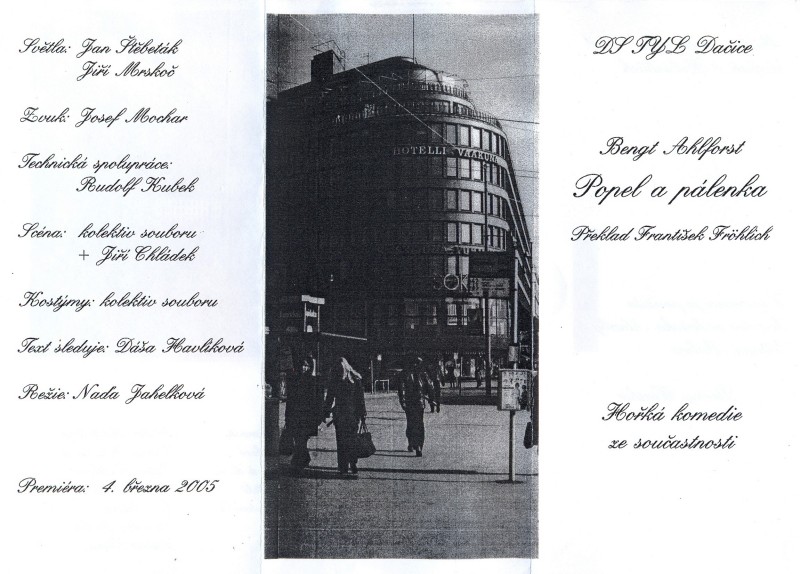 Světla: Jan Štěbeták
Jiří Mrskoč
Zvuk: Josef Mochar
Technická spolupráce:
Rudolf Kubek
Scéna: kolektiv souboru
+ Jiří Chládek
Kostýmy: kolektiv souboru
Text sleduje: Dáša Havlíková
Režie: Naďa Jahelková
Premiéra: 4. března 2005
HOTELLI VAAKUNA
SOK
DS TYL Dačice
Bengt Ahlforst
Popel a pálenka
Překlad František Fröhlich
Hořká komedie
ze součastnosti